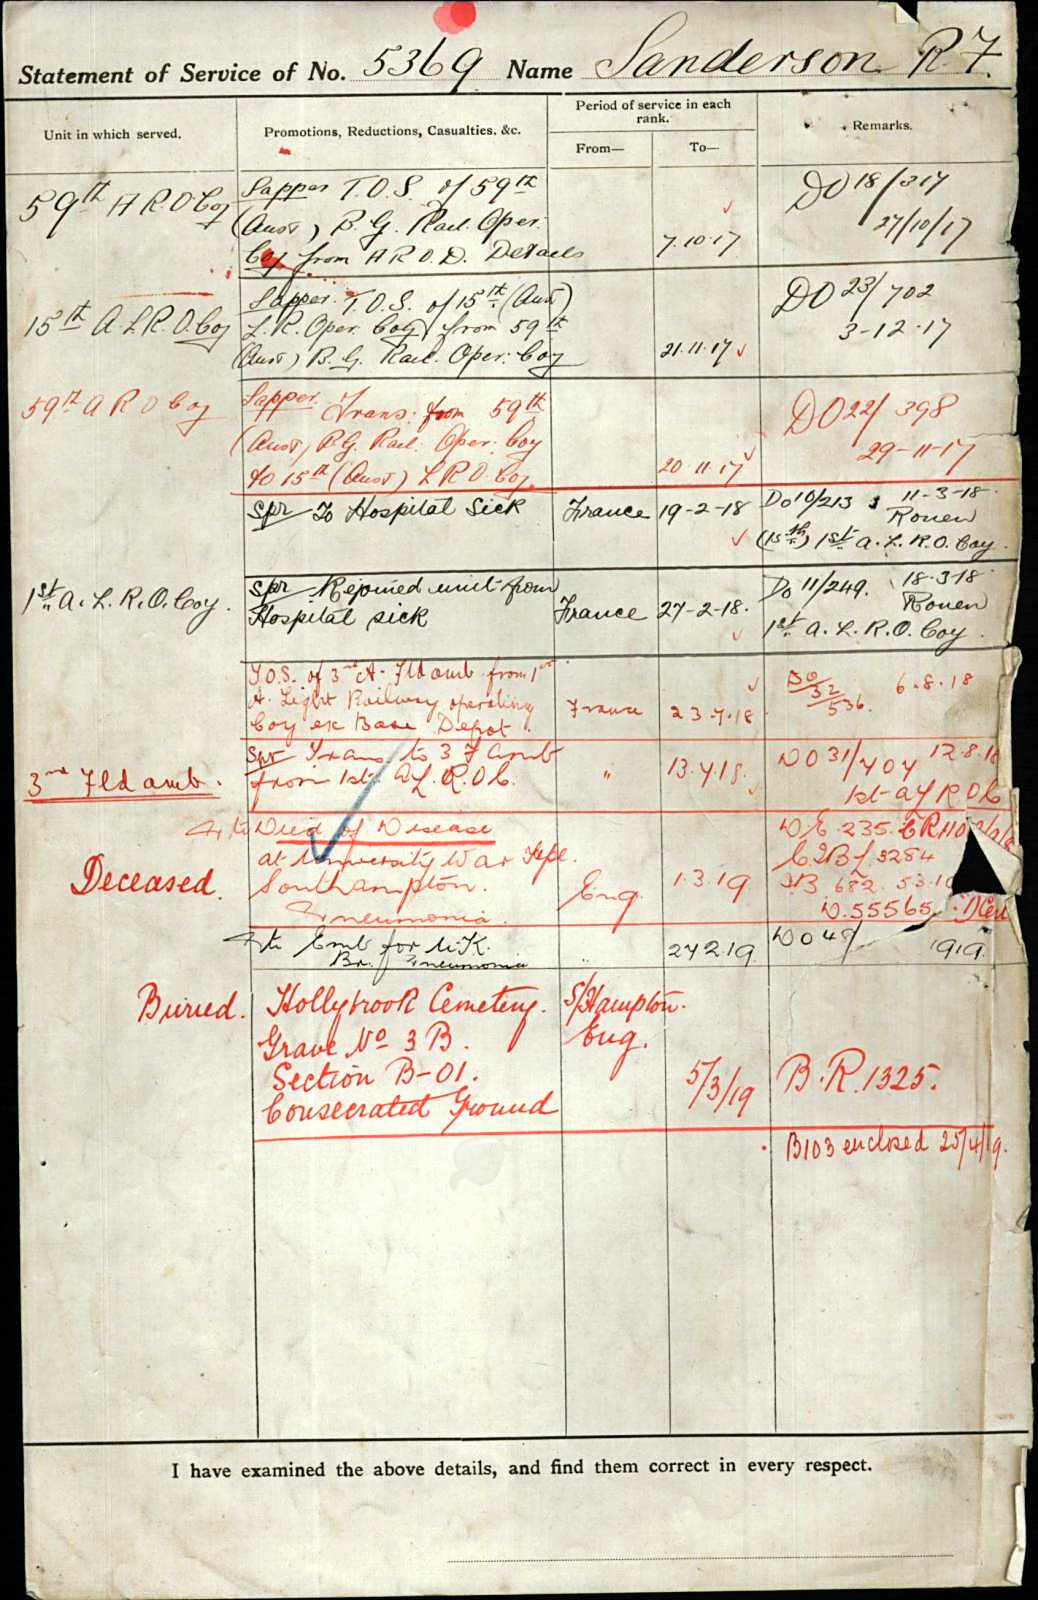 Statement of Service of No. 5369 Name Sanderson R. F.
Unit in which served.
Promotions, Reductions, Casualties, &c.
Period of service in each
rank.
From—
To—
Remarks.
59th A R O Coy
Sapper T.O.S. of 59th
(Aust) B. G. Rail Oper.
Coy from A R O. D. Details
7.10.17
DO 18/317
27/10/17
15th A L R. O. Coy
Sapper. T.O.S. of 15th (Aust)
L. R. Oper. Coy from 59th
(Aust) B. G. Rail. Oper: Coy
21.11.17
DO 23/702
3-12-17
59th A R O Coy
Sapper. Trans. from 59th
(Aust) B G. Rail: Oper: Coy
to 15th (Aust) L R O. Coy.
20.11.17
DO 22/398
29-11-17
Spr To Hospital Sick
France
19-2-18
Do 10/213
11-3-18
Rouen
(15th) 1st A. L. R. O. Coy.
1st A. L. R. O. Coy.
Spr Rejoined unit from
Hospital sick
France
27-2-18.
Do 11/249.
18-3-18
Rouen
1st A. L. R. O. Coy.
T.O.S. of 3rd A. Fld amb from 1st
A. Light Railway operating
Coy ex Base Depot.
France
23.7.18
DO
32/536.
6.8.18
3rd Fld amb.
Spr Trans to 3 F Amb
from 1st A L. R. O C.
"
13.7.18.
DO 31/707
12.8.18
1st A L R O C
Deceased.
Died of Disease
at University War Hspl.
Southampton.
Pneumonia.
Eng.
1.3.19
235.
3284
682.
D.55565
Emb for U.K.
Br. Pneumonia
"
24 2 19
DO 48/
1919
Buried.
Hollybrook Cemetery.
Grave No 3 B.
Section B-01.
Consecrated Ground
S/Hampton.
Eng.
5/3/19
B.R.1325.
B103 enclosed 25/4/19.
I have examined the above details, and find them correct in every respect.